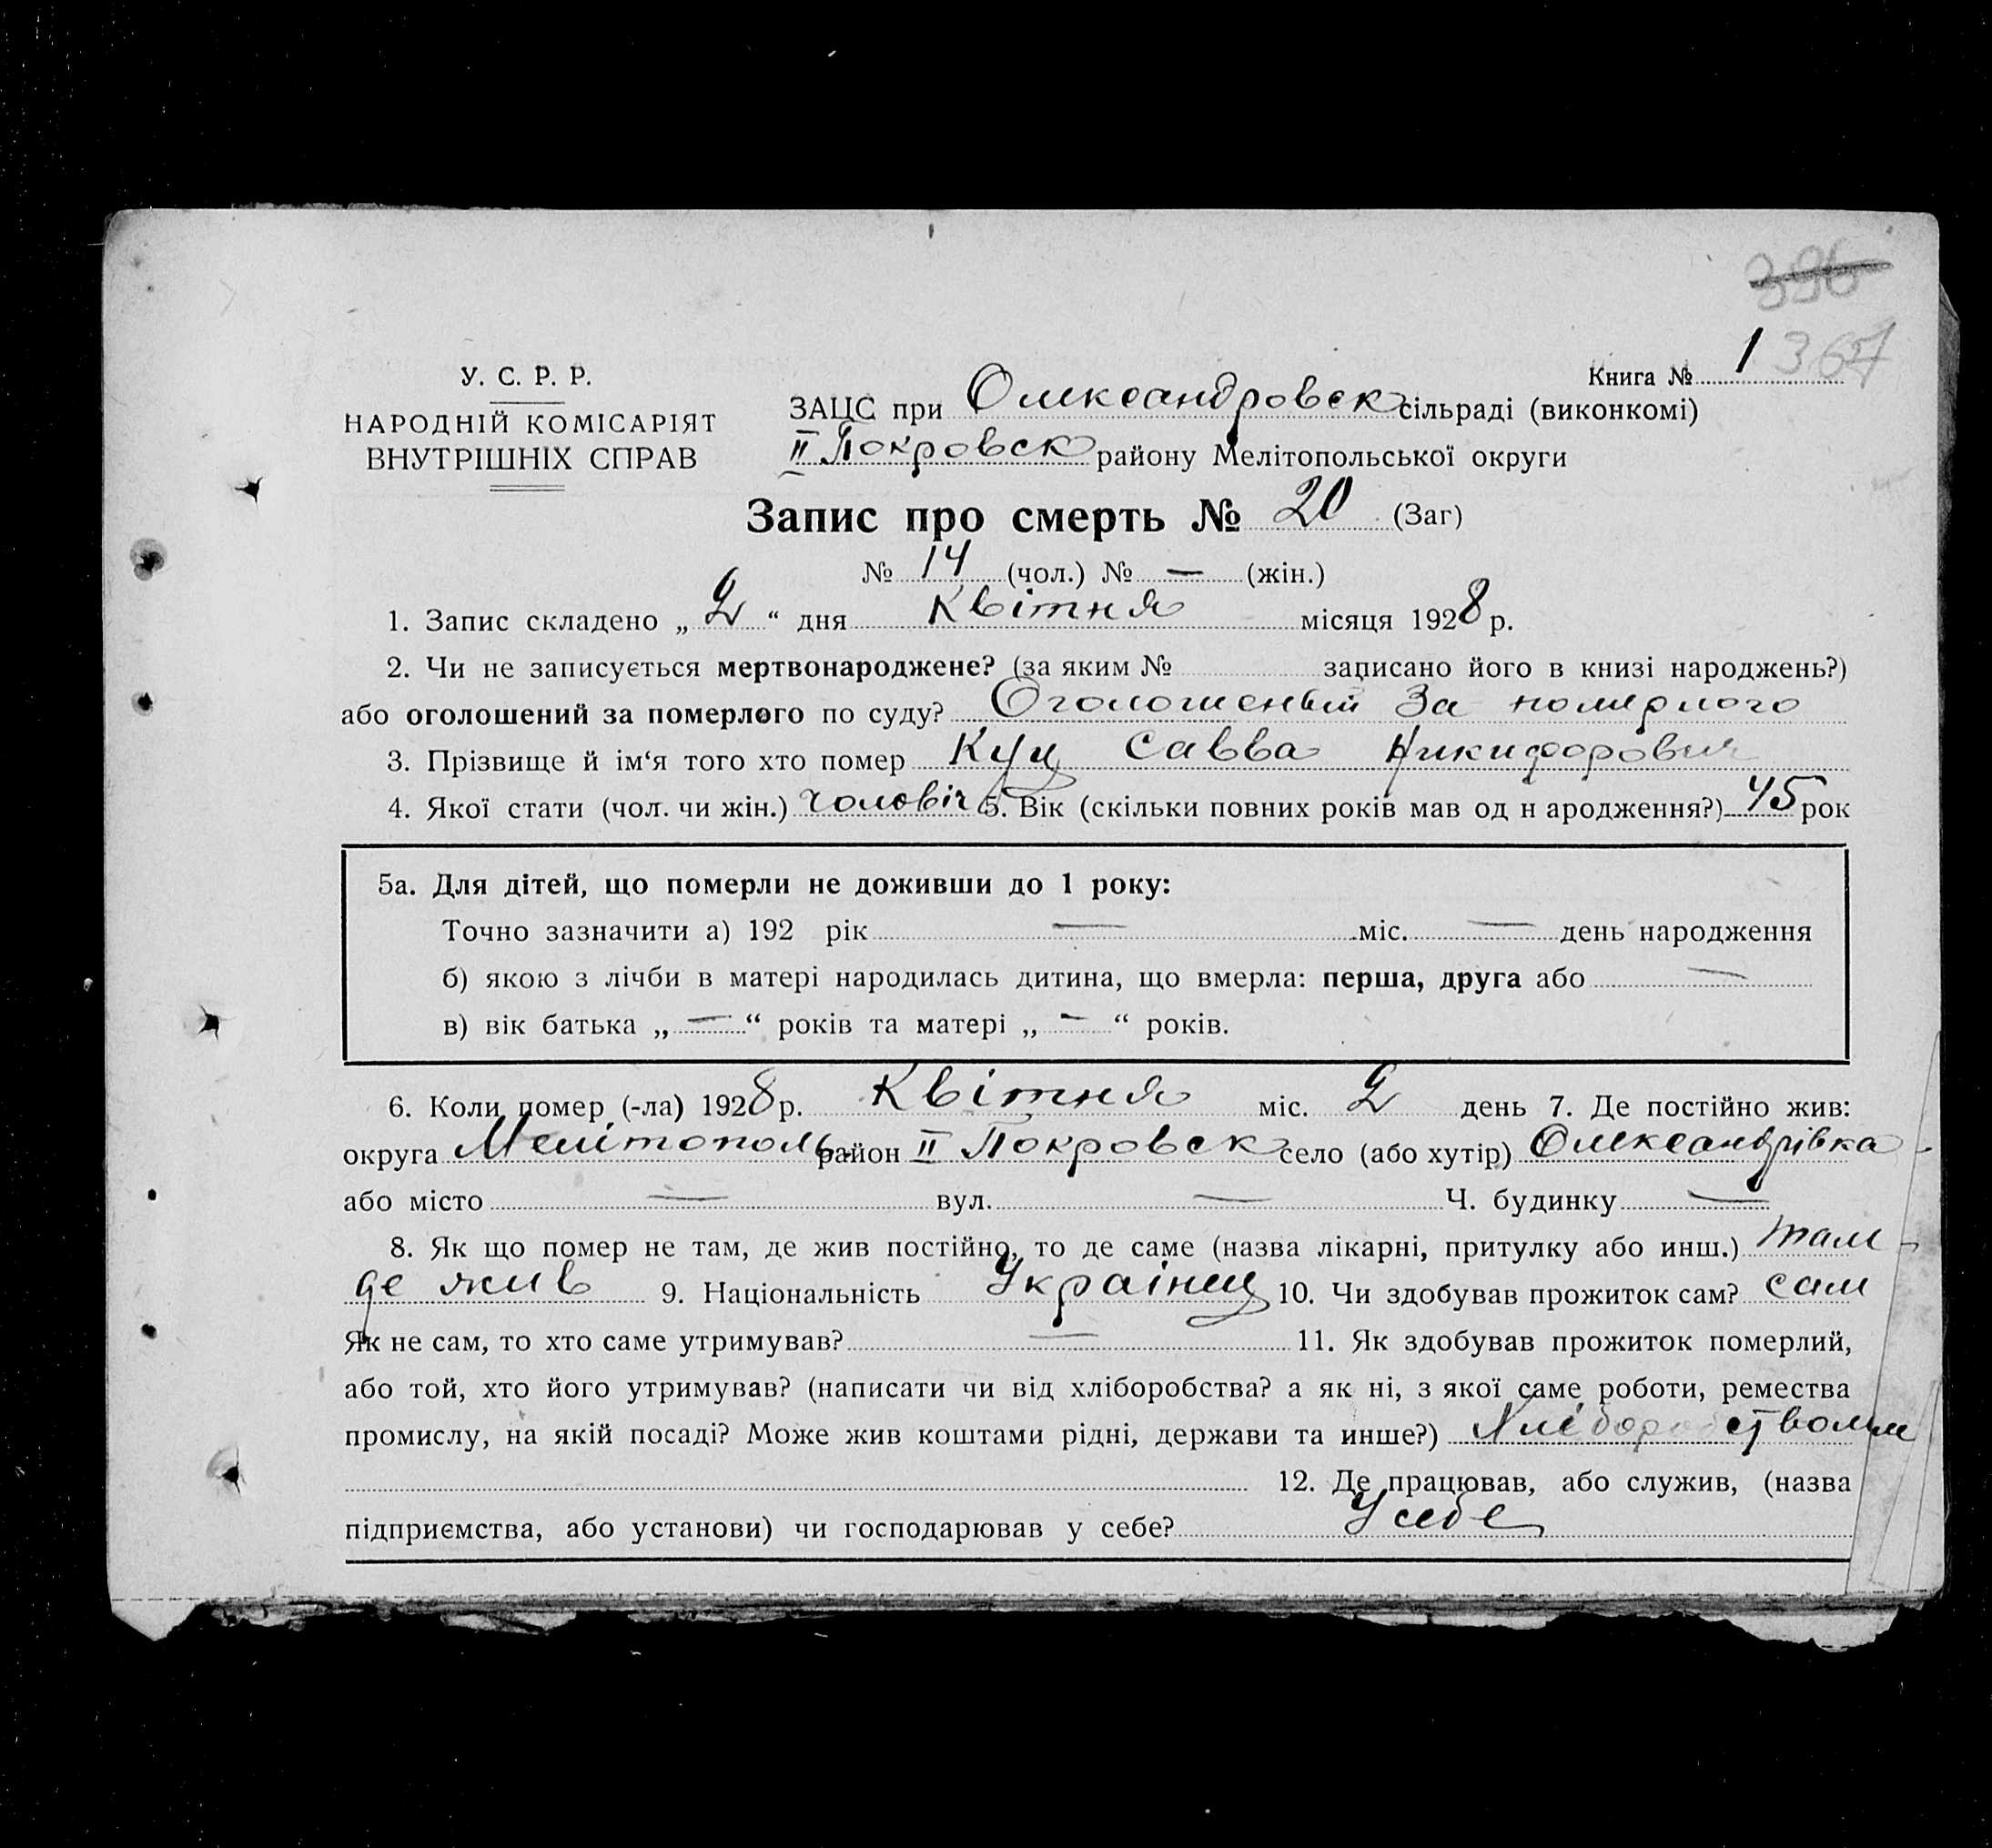 396
У. С. Р. Р.
НАРОДНІЙ КОМІСАРІЯТ
ВНУТРІШНІХ СПРАВ
Книга № 1 367
ЗАЦС при Олександровск сільраді (виконкомі)
II Покровск району Мелітопольської округи
Запис про смерть № 20 (Заг)
№ 14 (чол.) № — (жін.)
1. Запис складено „ 2 “ дня Квітня місяця 1928 р.
2. Чи не записується мертвонароджене? (за яким № записано його в книзі народжень?)
або оголошений за померлого по суду? Оголошеный за померлого
3. Прізвище й ім‘я того хто помер Куц Савва Никифорович
4. Якої стати (чол. чи жін.) чоловіч 5. Вік (скільки повних років мав од н ародження?) 45 рок
5а. Для дітей, що померли не доживши до 1 року:
Точно зазначити а) 192 рік — міс. — день народження
б) якою з лічби в матері народилась дитина, що вмерла: перша, друга або —
в) вік батька „ — “ років та матері „ — “ років.
6. Коли помер (-ла) 1928 р. Квітня міс. 2 день 7. Де постійно жив:
округа Мелітополь. район II Покровск село (або хутір) Олександрівка
або місто — вул. — Ч. будинку —
8. Як що помер не там, де жив постійно, то де саме (назва лікарні, притулку або инш.) там –
де жив 9. Національність Украінец 10. Чи здобував прожиток сам? сам
Як не сам, то хто саме утримував? — 11. Як здобував прожиток померлий,
або той, хто його утримував? (написати чи від хліборобства? а як ні, з якої саме роботи, ремества
промислу, на якій посаді? Може жив коштами рідні, держави та инше?) Хліборобством
12. Де працював, або служив, (назва
підприємства, або установи) чи господарював у себе? У себе